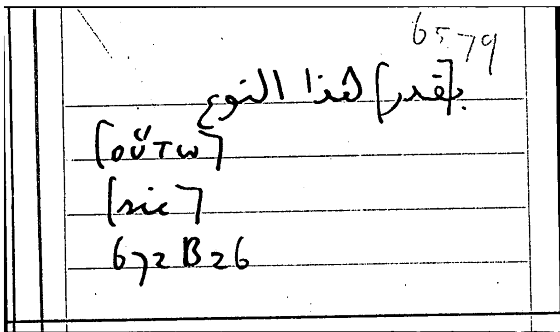 6579
بـ[قدر] هذا النوع
[οὕτω]
[sic]
672B26